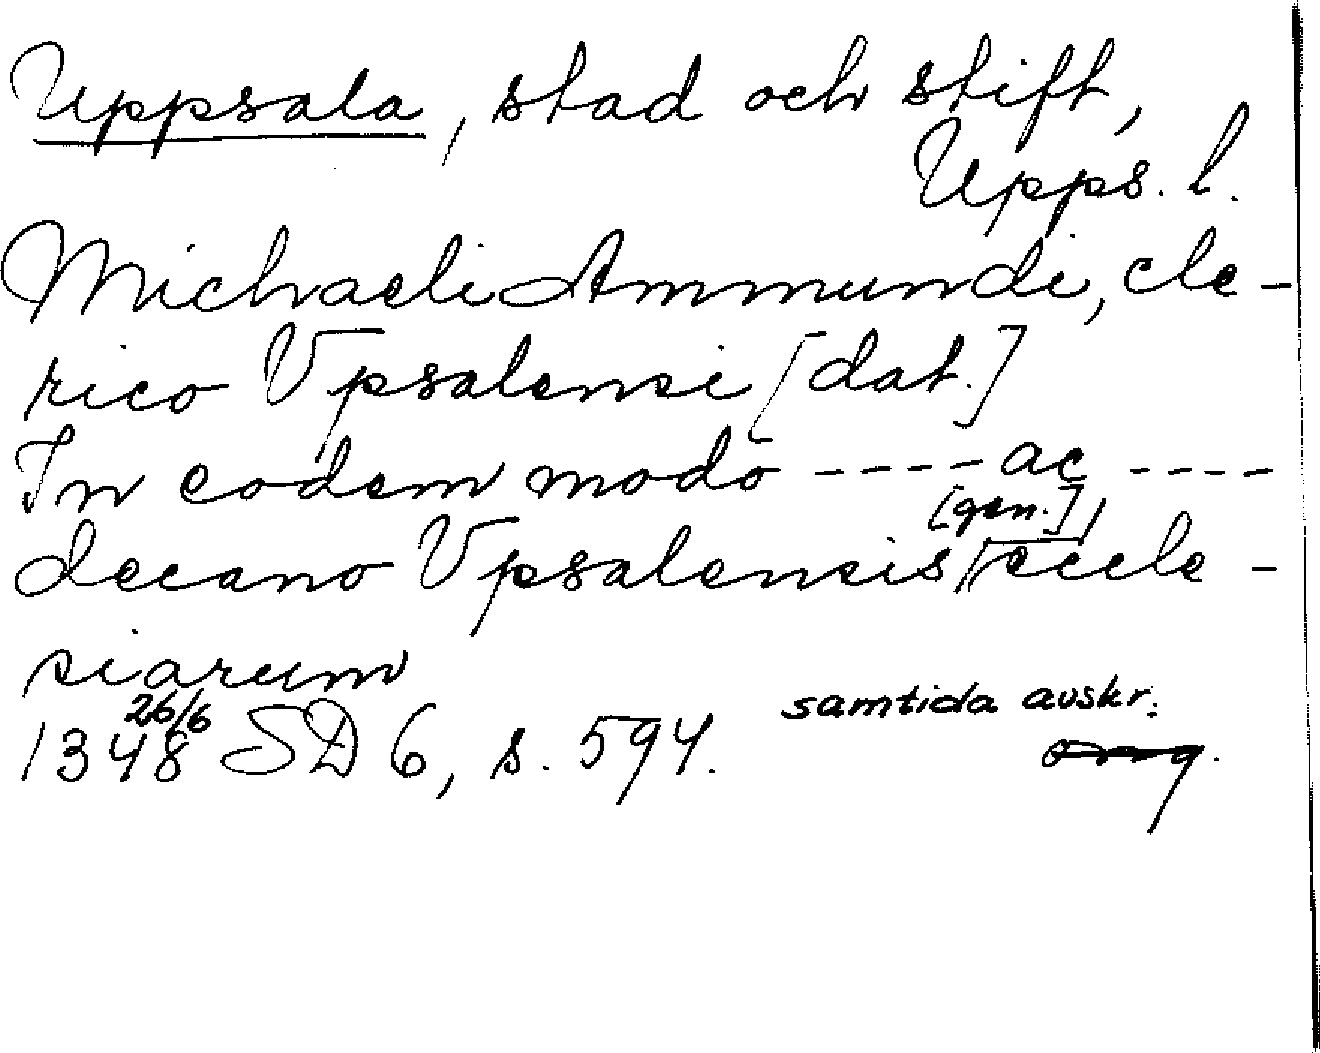 Uppsala, stad och stift,
Upps. l.
Michaeli Ammundi, cle-
rico Vpsalensi [dat.]
In eodem modo ---- ac ----
[gen.]
decano Vpsalensis eccle-
siarum
26/6
1348 SD 6, s. 594.
samtida avskr.